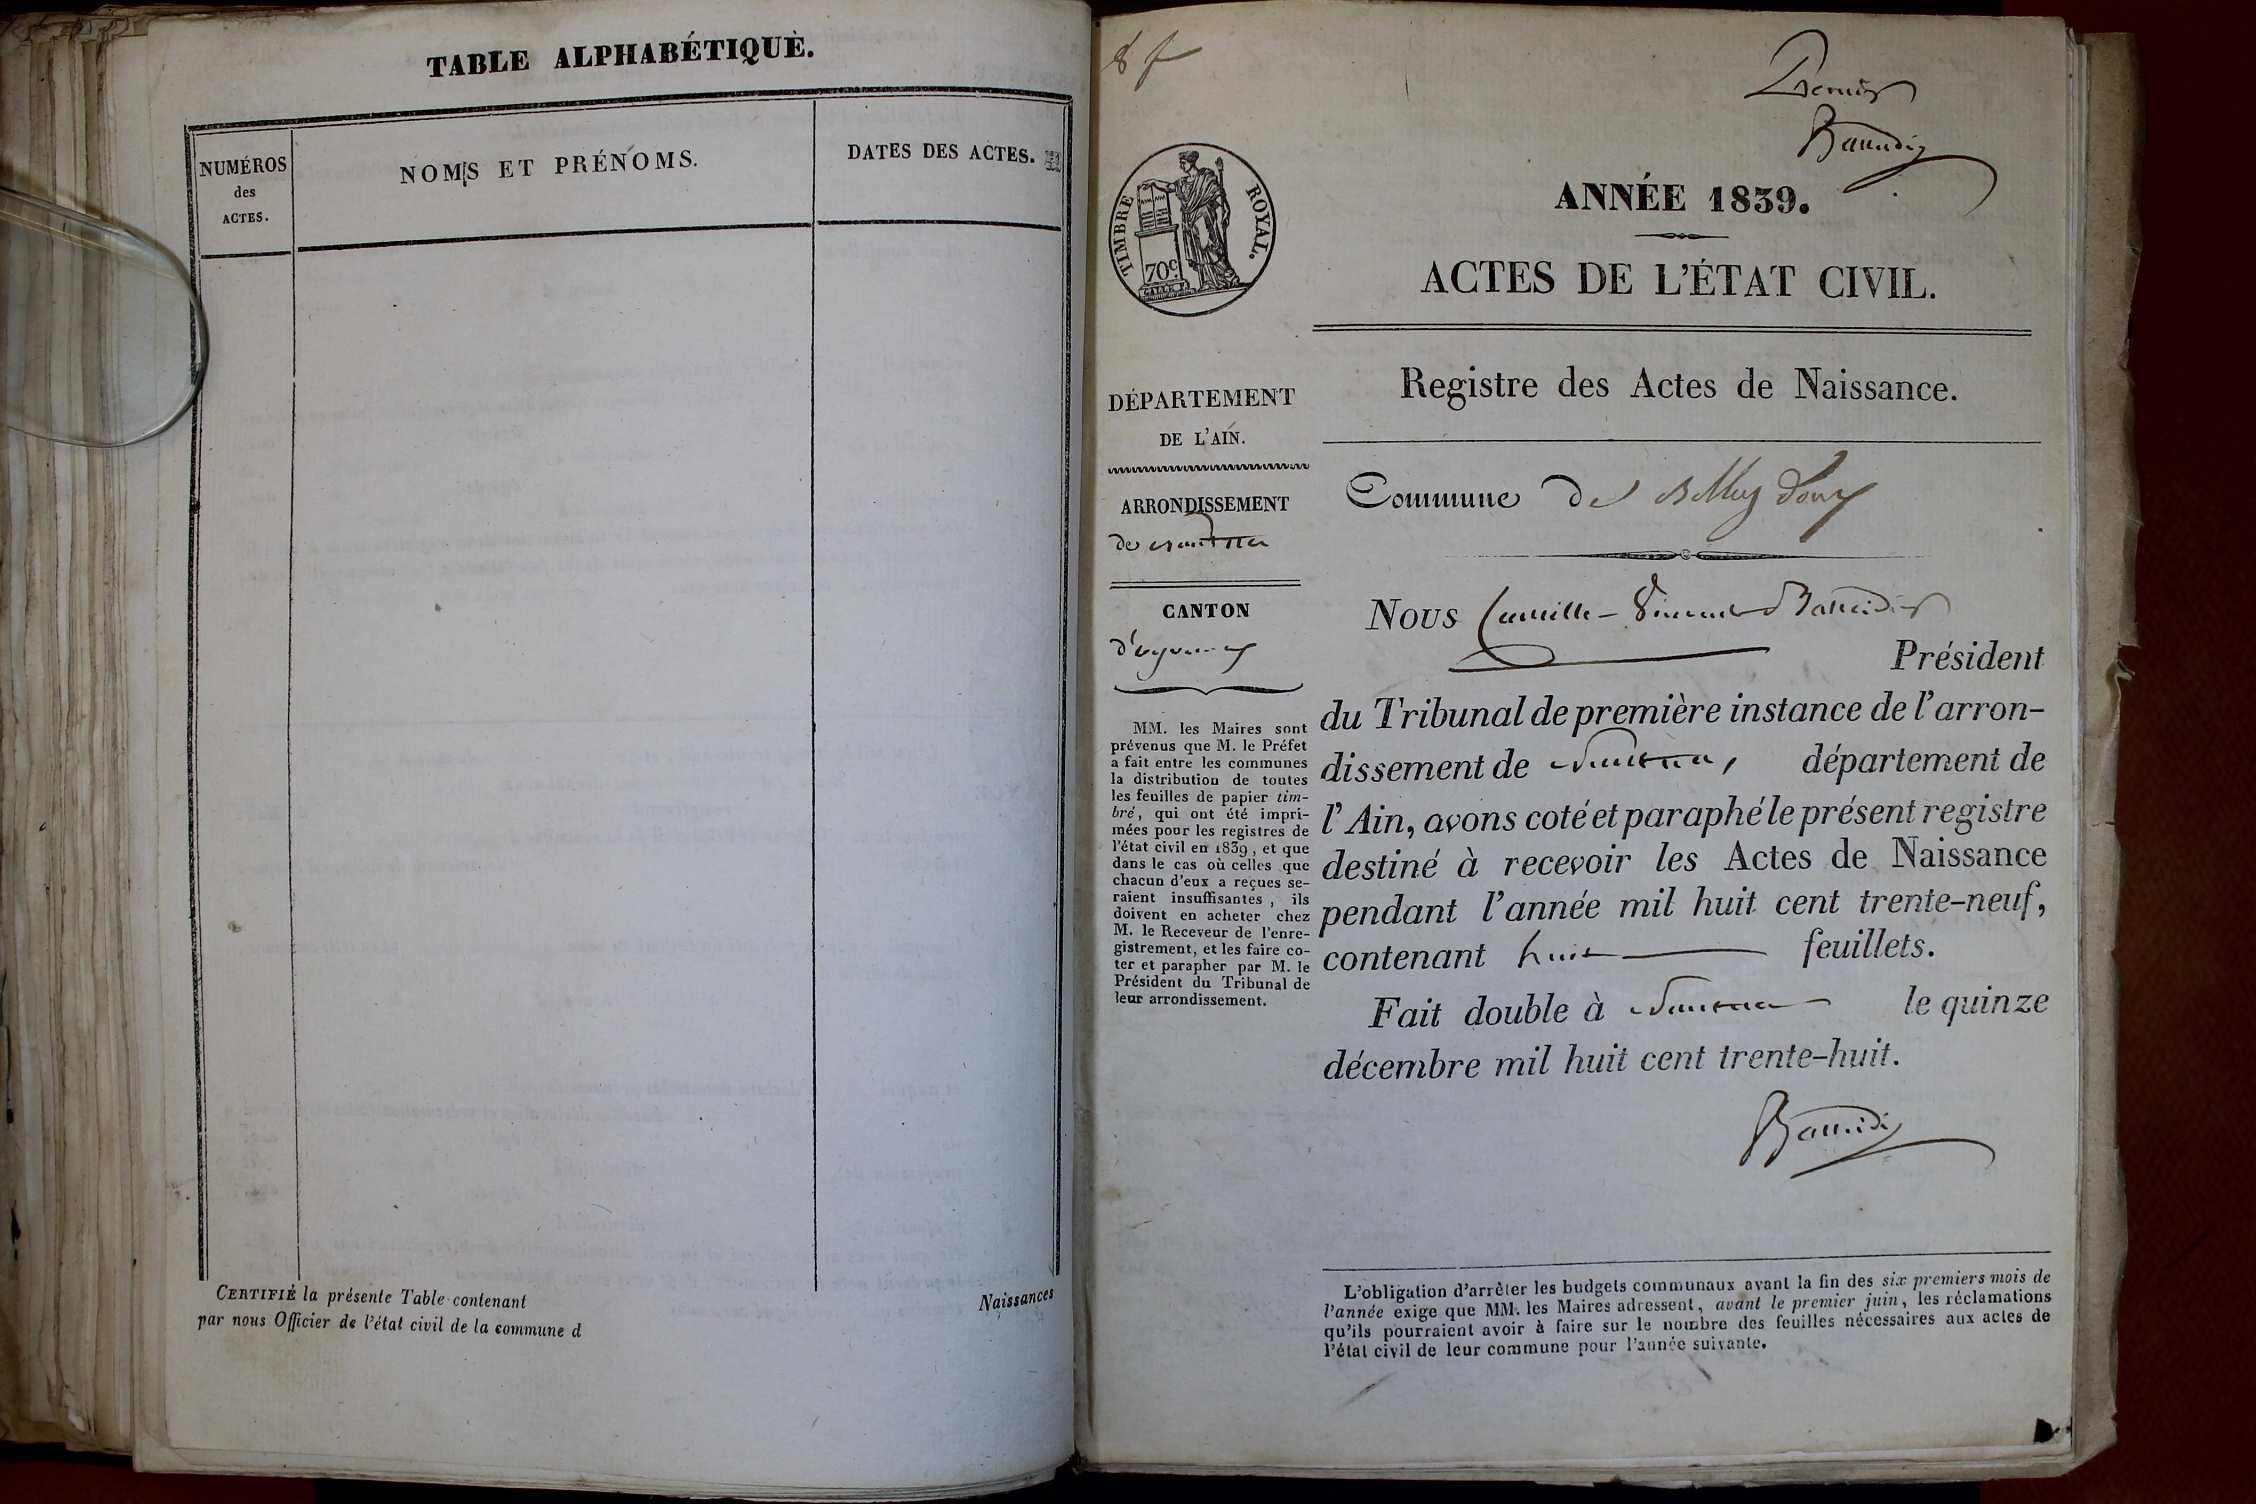 TABLE ALPHABÉTIQUE.
NUMÉROS
des
ACTES.
NOMS ET PRÉNOMS.
DATES DES ACTES.
CERTIFIÉ la présente Table contenant
Naissances
par nous Officier de l'état civil de la commune d
8 f
Baudin
TIMBRE ROYAL.
70c
ANNÉE 1839.
ACTES DE L'ÉTAT CIVIL.
Registre des Actes de Naissance.
Commune de
DÉPARTEMENT
DE L'AIN.
ARRONDISSEMENT
de Nantua
CANTON
d'oyonnax
MM. les Maires sont
prévenus que M. le Préfet
a fait entre les communes
la distribution de toutes
les feuilles de papier tim-
bré, qui ont été impri-
mées pour les registres de
l'état civil en 1839, et que
dans le cas où celles que
chacun d'eux a reçues se-
raient insuffisantes, ils
doivent en acheter chez
M. le Receveur de l'enre-
gistrement, et les faire co-
ter et parapher par M. le
Président du Tribunal de
leur arrondissement.
Nous Camille-
Président
du Tribunal de première instance de l'arron-
dissement de Nantua, département de
l'Ain, avons coté et paraphé le présent registre
destiné à recevoir les Actes de Naissance
pendant l'année mil huit cent trente-neuf,
contenant huit feuillets.
Fait double à Nantua le quinze
décembre mil huit cent trente-huit.
L'obligation d'arrêter les budgets communaux avant la fin des six premiers mois de
l'année exige que MM. les Maires adressent, avant le premier juin, les réclamations
qu'ils pourraient avoir à faire sur le nombre des feuilles nécessaires aux actes de
l'état civil de leur commune pour l'année suivante.